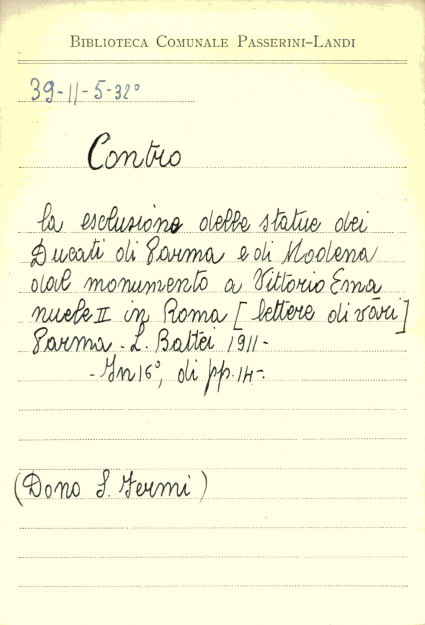 BIBLIOTECA COMUNALE PASSERINI-LANDI
39-11-5-32°
Contro
la esclusione delle statue dei
Ducati di Parma e di Modena
dal monumento a Vittorio Ema
nuele II in Roma [lettere di vari]
Parma - L. Battei 1911-
- In 16°, di pp. 14-.
(Dono S. Fermi)